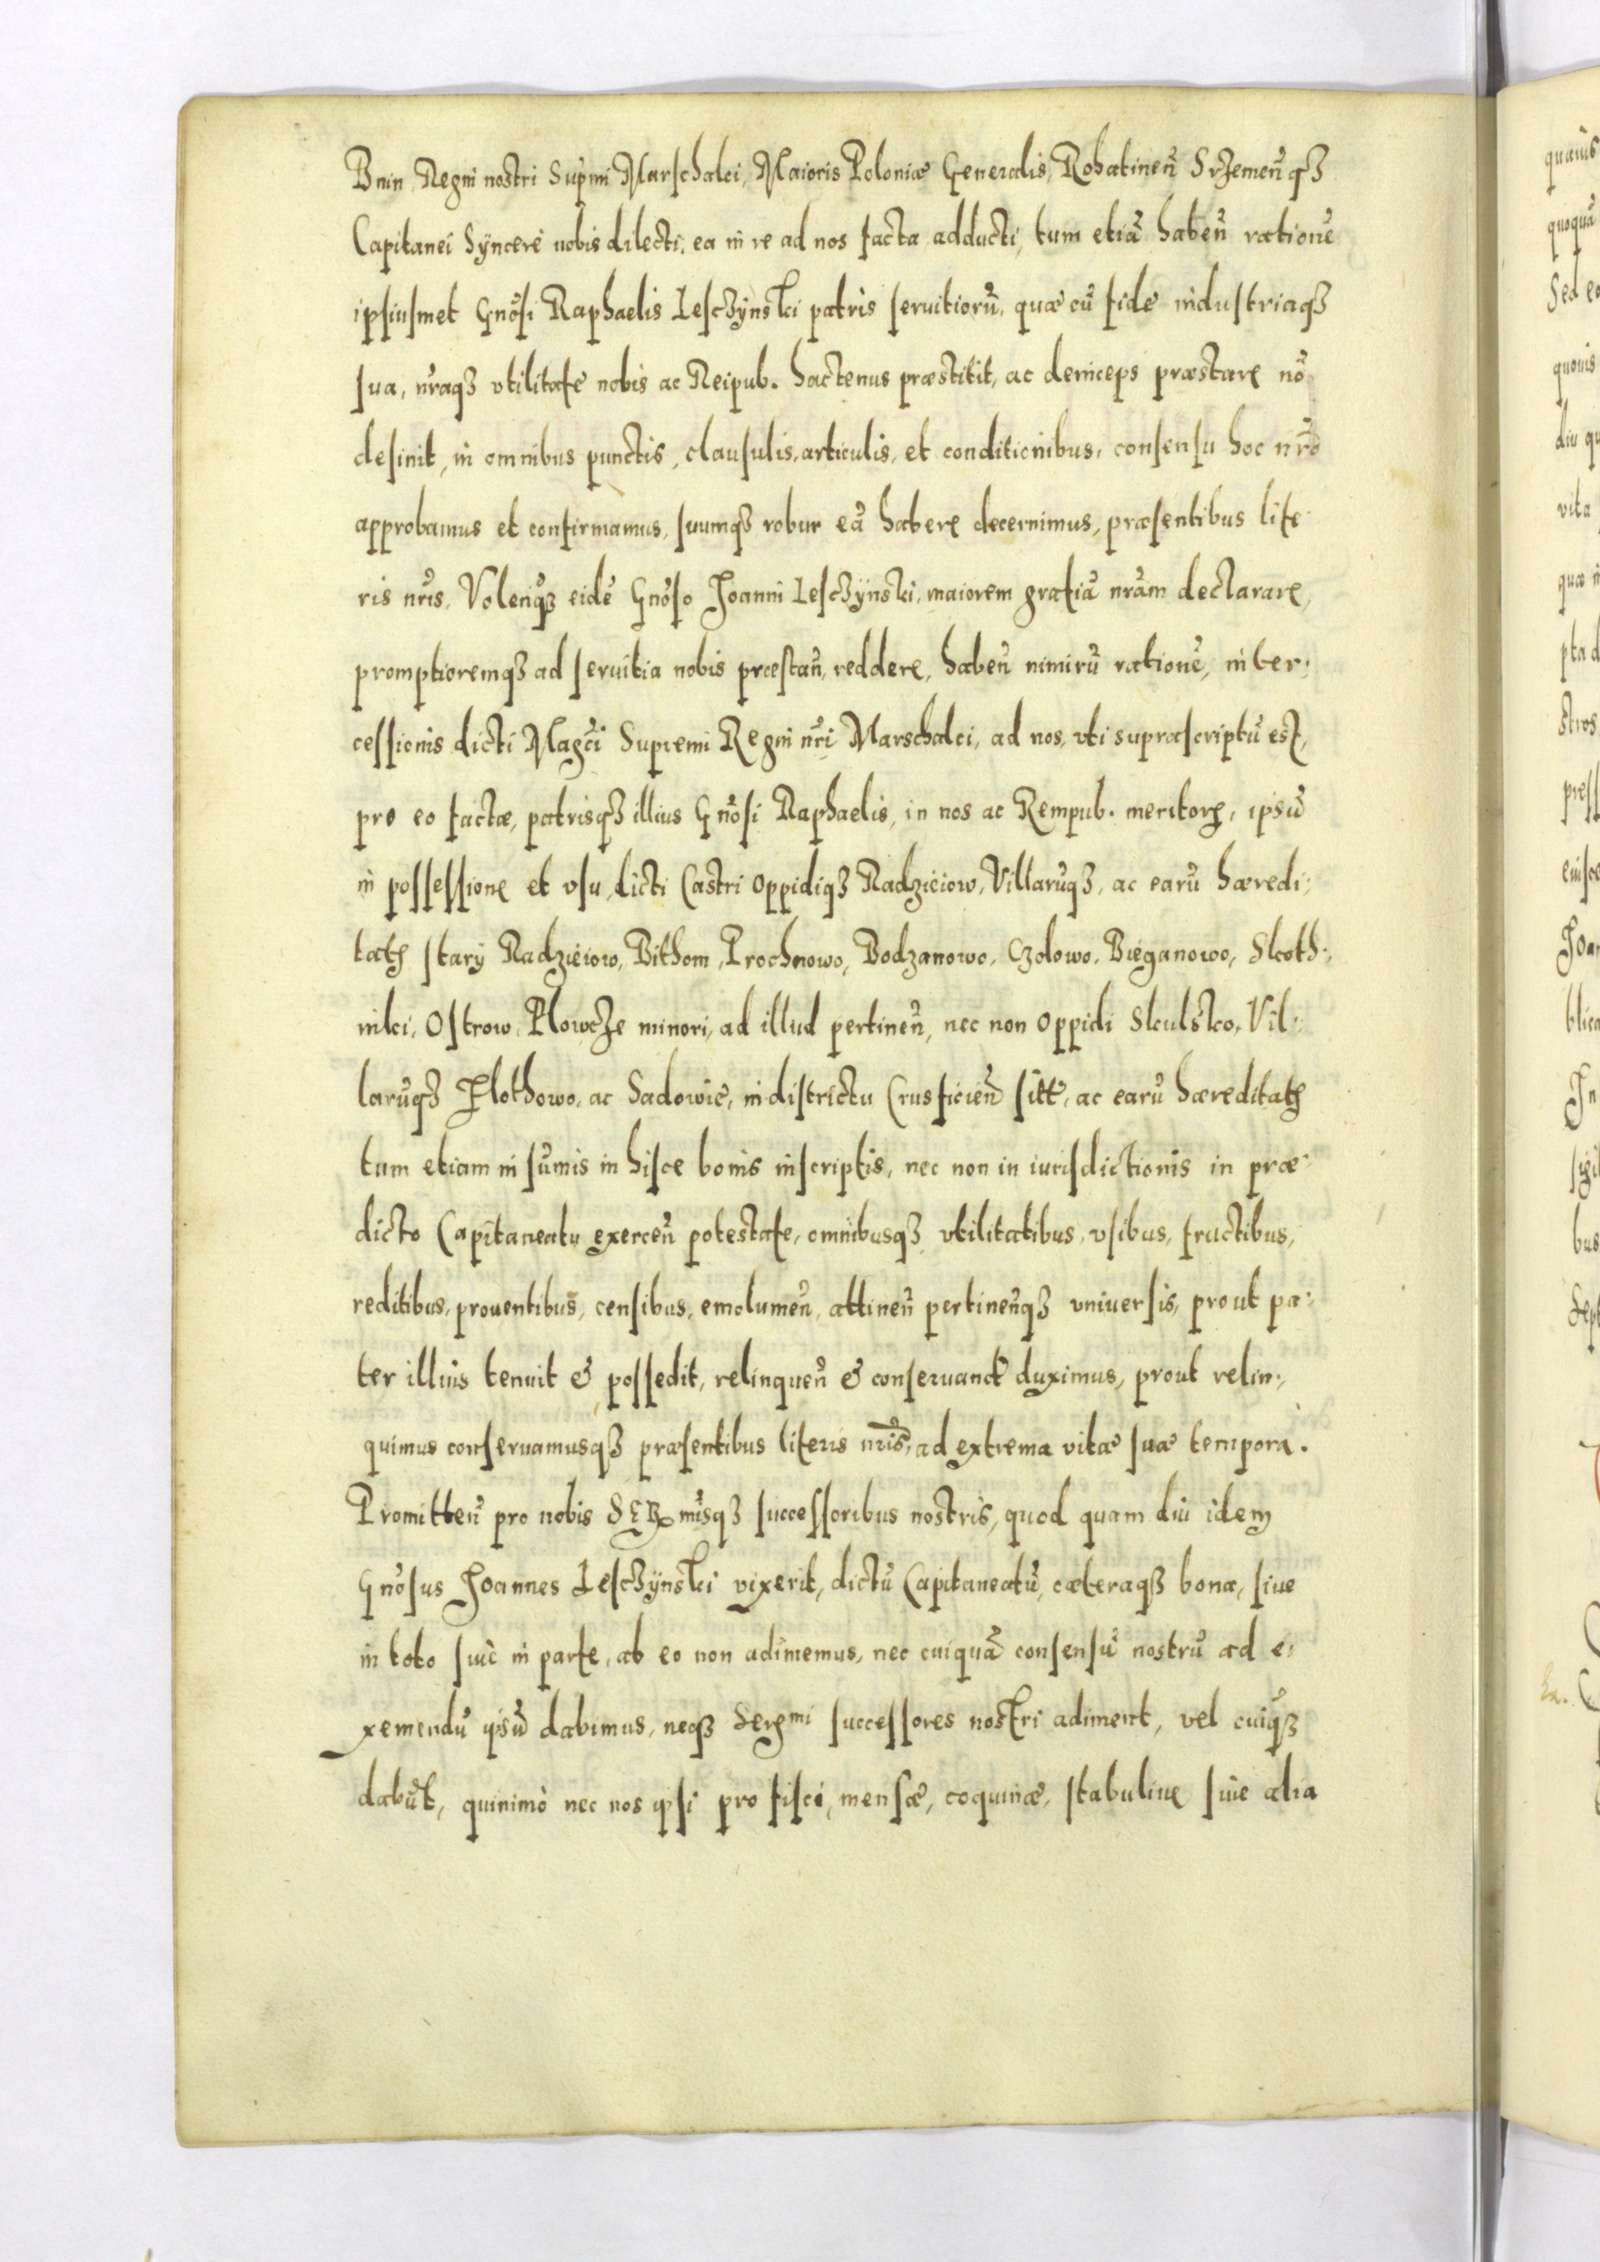 Bnin Regni nostri Supmi Marschalci, Maioris Poloniæ Generalis, Rohatineñ Srzemeñ qȝ
Capitanei Synceré nobis dilecti, ea in re ad nos facta adducti, tum etiã habeñ rationẽ
ipsiusmet Gnõsi Raphaelis Lesczÿnski patris seruitiorũ, quæ cũ fide industriaqȝ
sua, nr̃aqȝ vtilitate nobis ac Reipub. hactenus præstitit, ac deinceps præstare nõ
desinit, in omnibus punctis, clausulis, articulis, et conditionibus, consensu hoc nr̃o
approbamus et confirmamus, suumqȝ robur eã habere decernimus, præsentibus lite
ris nr̃is. Voleñqȝ eidẽ Gnõso Joanni Lesczÿnski, maiorem gratiã nr̃am declarare,
promptioremqȝ ad seruitia nobis præstañ, reddere, habeñ nimirũ rationẽ, inter-
cessionis dicti Magc̃i Supremi Regni nr̃i Marschalci, ad nos, vti suprascriptũ est,
pro eo factæ, patrisqȝ illius Gnõsi Raphaelis, in nos ac Rempub. meritorꝝ, ipsũ
in possessione et vsu, dicti Castri oppidiqȝ Radzieiow, Villarũqȝ, ac earũ hæredi-
tatꝭ stary Radzieiow, Bithom, Prochnowo, Bodzanowo, Czolowo, Bieganowo, Skoth-
niki, Ostrow, Plowcze minori, ad illud pertineñ, nec non oppidi Skulsko, Vil-
larũqȝ Plothowo, ac Sadowie, in districtu Crusficieñ sitt̃, ac earũ hæreditatꝭ
tum etiam in sũmis in hisce bonis inscriptis, nec non in iurisdictionis in præ-
dicto Capitaneatu exerceñ potestate, omnibusqȝ vtilitatibus, vsibus, fructibus,
reditibus, prouentibus, censibus, emolumeñ, attineñ pertineñqȝ vniuersis, prout pa-
ter illius tenuit & possedit, relinqueñ & conseruand̃ duximus, prout relin-
quimus conseruamusqȝ præsentibus literis nr̃is, ad extrema vitæ suæ tempora.
Promitteñ pro nobis SERmisqȝ successoribus nostris, quod quam diu idem
Gnõsus Joannes Lesczÿnski vixerit, dictũ Capitaneatũ, cæteraqȝ bona, siue
in toto siue in parte, ab eo non adimemus, nec cuiquã consensũ nostrũ ad e-
ximendũ ipsũ dabimus, neqȝ Serꝭmi successores nostri adiment, vel cuiqȝ
dabũt, quinimò nec nos ipsi pro fisci, mensæ, coquinæ, stabuliue siue alia